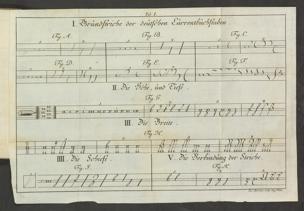 Tab. I.
I. Grundstriche der deutschen Currentbuchstaben
Fig. A. Fig. B. Fig. C.
Fig. D. Fig. E. Fig. F.
II. Die Höhe, und Tiefe.
Fig. G.
III. Die Breite.
Fig. H.
IV. Die Schiefe. V. Die Verbindung der Striche.
Fig. I. Fig. K.